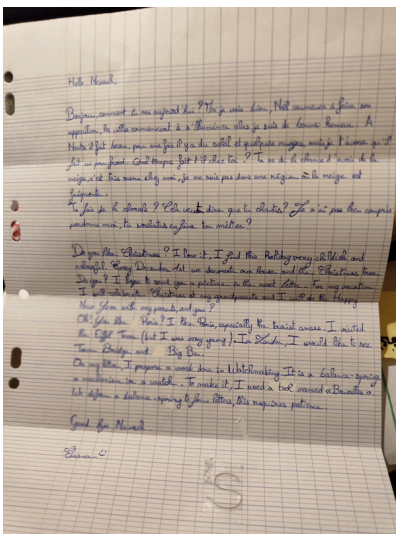 Hello Nevaeh,
Bonjour, comment tu vas aujourd'hui ? Moi je vais bien, Noël commence à faire son
apparition, les villes commencent à s'illuminer alors je suis de bonne humeur. A
il fait beau, pour une fois il y a du soleil et quelques nuages, mais je t'avoue qu'il
fait un peu froid. Quel temps fait-il chez toi ? Tu as de la chance d'avoir de la
neige, c'est très rare chez moi, je ne vis pas dans une région où la neige est
fréquente.
Tu fais de la chorale ? Cela veut dire que tu chantes ? Je n'ai pas bien compris
pardonne moi, tu souhaites en faire ton métier ?
Do you like Christmas ? I love it, I find this holiday very childish and
colorful. Every December 1st we decorate our house and the Christmas tree.
Do you ? I hope to send you a picture in the next letter. For my vacation
I will celebrate Christmas at my grandparents and I will do the Happy
New Year with my parents, and you ?
Oh! You like Paris ? I like Paris, especially the touristic areas. I visited
the Eiffel Tower (but I was very young). In London, I would like to see
Tower Bridge and Big Ben.
On my letter, I prepare a work done in Watchmaking. It is a balance-spring
a mechanism in a watch. To make it, I used a tool named « Bruxelles »
We deform a balance-spring to form letters, this requires patience.
Good bye Nevaeh